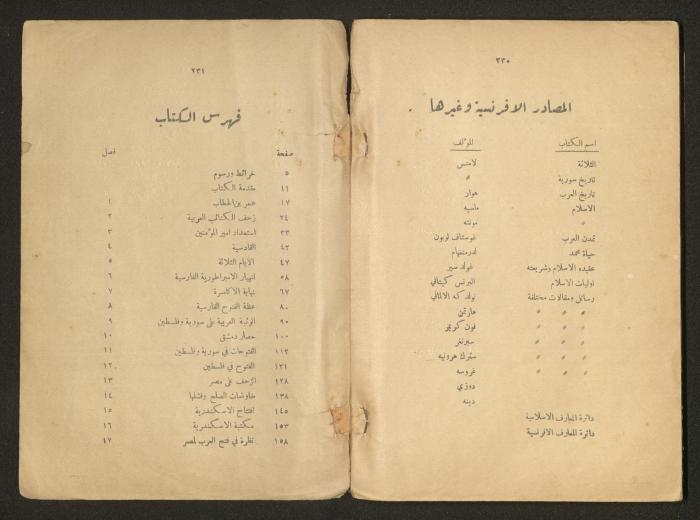 ٢٣٠
المصادر الافرنسية وغيرها
اسم الكتاب المؤلف
الثلاثة لامنس
تاريخ سورية »
تاريخ العرب هوار
الاسلام ماسيه
» مونته
تمدن العرب غوستاف لوبون
حياة محمد لدرمنغهام
عقيده الاسلام وشريعته غولد سير
اوليات الاسلام البرنس كيتاني
رسائل ومقالات مختلفة نولد كه الالماني
» » » هارتمن
» » » فون كريمر
» » » سبرنغر
» » » سنوك هرونيه
» » » غروسه
دوزي
دينه
دائرة المعارف الاسلامية
دائرة المعارف الافرنسية
٢٣١
فهرس الكتاب
صفحة فصل
٥ خرائط ورسوم
١١ مقدمة الكتاب
١٧ عمر بن الخطاب ١
٢٤ زحف الكتائب العربية ٢
٣٣ استعداد امير المؤمنين ٣
٤٢ القادسية ٤
٤٧ الايام الثلاثة ٥
٥٨ انهيار الامبراطورية الفارسية ٦
٦٧ نهاية الاكاسرة ٧
٨٠ عظة الفتوح الفارسية ٨
٩٠ الوثبة العربية على سورية وفلسطين ٩
١٠٠ حصار دمشق ١٠
١١٢ الفتوحات في سورية وفلسطين ١١
١٢١ الفتوح في فلسطين ١٢
١٢٨ الزحف على مصر ١٣
١٣٨ مفاوضات الصلح وفشلها ١٤
١٤٥ افتتاح الاسكندرية ١٥
١٥٣ مكتبة الاسكندرية ١٦
١٥٨ نظرة في فتح العرب لمصر ٤٧